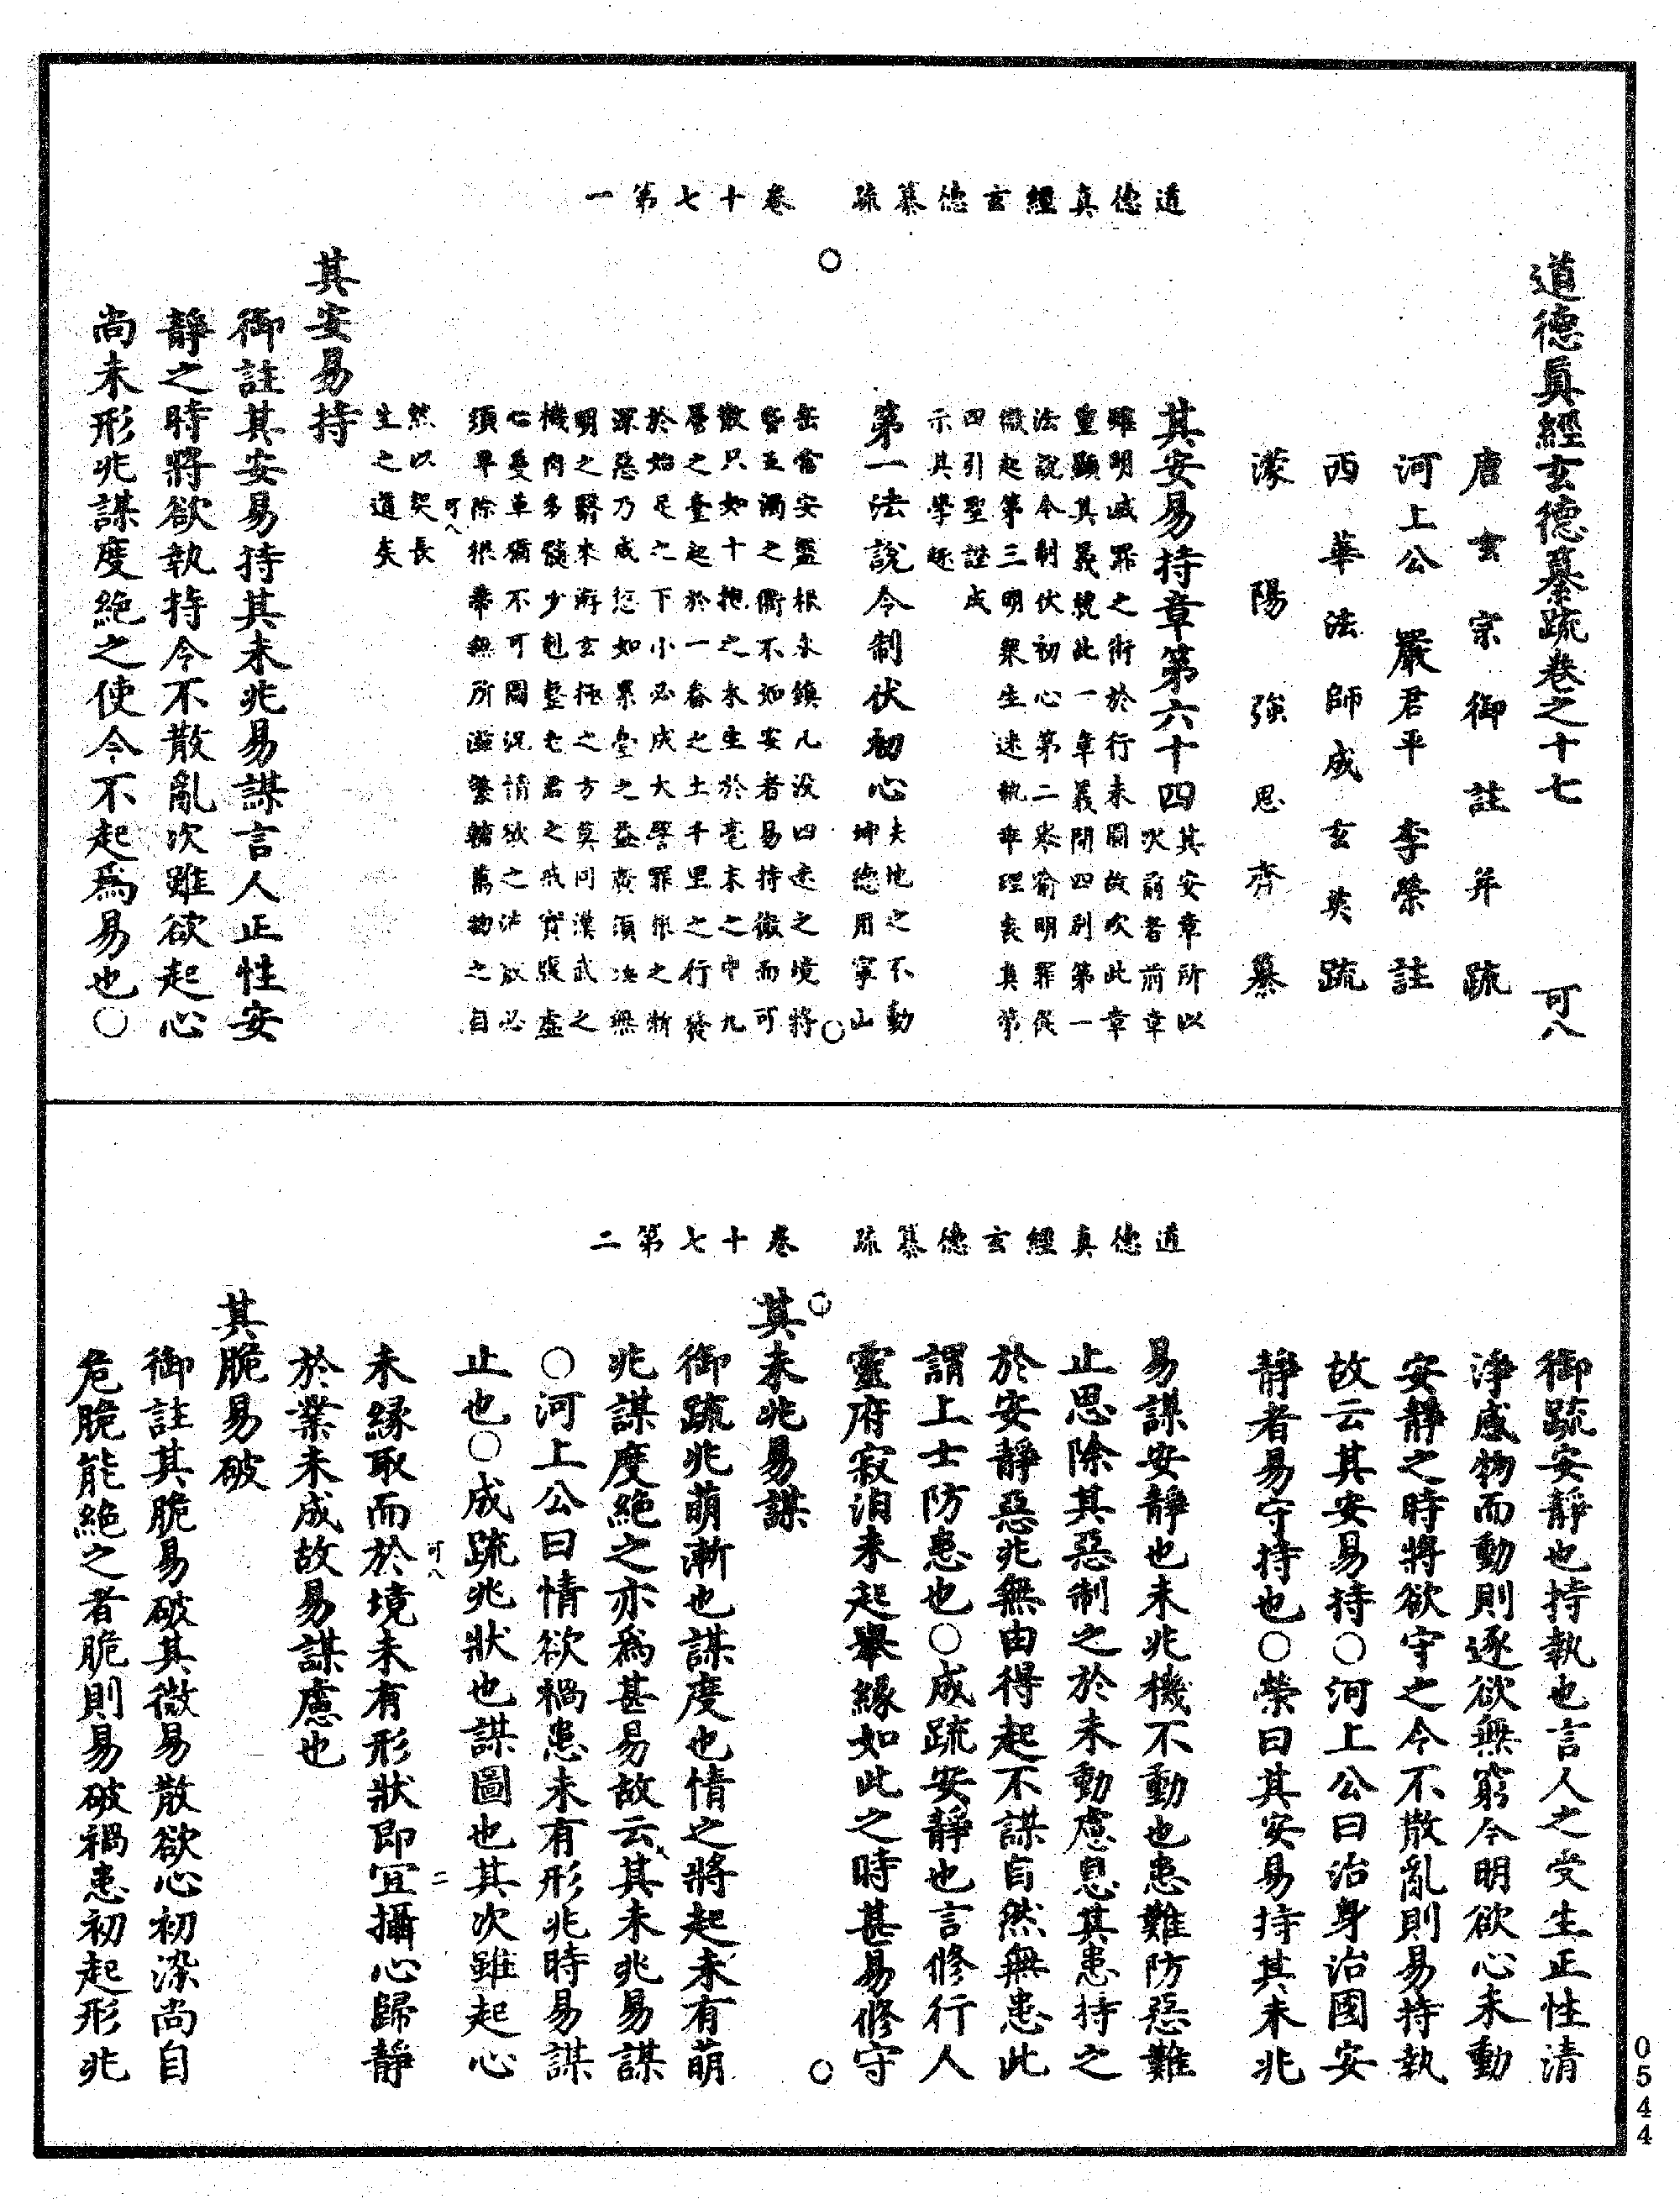 道德真經玄德纂疏　卷十七第一
道德眞經玄德纂疏卷之十七　可八
唐玄宗御註并疏
河上公　嚴君平　李榮註
西華法師成玄英疏
濛陽強思齊纂
其安易持章第六十四
其安章所以
次前者前章
雖明滅罪之術於行未圓故次此章
重顯其義就此一章義開四別第一
法說令制伏初心第二舉喻明罪從
微起第三明衆生迷執乖理喪真第
四引聖證成
示其學逐
第一法說令制伏初心
夫地之不動
坤德用寧山
岳常安盤根永鎮凡没四迷之境將
昏五濁之衢不如安者易持微而可
散只如十抱之木生於毫末之中九
層之臺起於一畚之土千里之行發
於始足之下小必成大譬罪根之漸
深惡乃成愆如累臺之益廣須決無
明之翳來游玄極之方莫同漢武之
機肉多髓少剋整老君之戒寶賬虛
心憂革猶不可圖況情欲之 故必
須早除根蒂無所滋繁輔萬物之自
可八
然以契長
生之道矣
其安易持
御註其安易持其未兆易謀言人正性安
靜之時將欲執持令不散亂次雖欲起心
尚未形兆謀度絶之使令不起爲易也○
道德真經玄德纂疏　卷十七第二
御疏安靜也持執也言人之受生正性清
淨感物而動則逐欲無窮今明欲心未動
安靜之時將欲守之令不散亂則易持執
故云其安易持○河上公曰治身治國安
靜者易守持也○榮曰其安易持其未兆
易謀安靜也未兆機不動也患難防惡難
止思除其惡制之於未動慮息其患持之
於安靜惡兆無由得起不謀自然無患此
謂上士防患也○成疏安靜也言修行人
靈府寂泊未起攀緣如此之時甚易修守
其未兆易謀
御疏兆萌漸也謀度也情之將起未有萌
兆謀度絶之亦爲甚易故云其未兆易謀
○河上公曰情欲禍患未有形兆時易謀
止也○成疏兆狀也謀圖也其次雖起心
未緣取而於境未有形狀即宜攝心歸靜
可八　二
於業未成故易謀慮也
其脆易破
御註其脆易破其微易散欲心初染尚自
危脆能絶之者脆則易破禍患初起形兆
0544